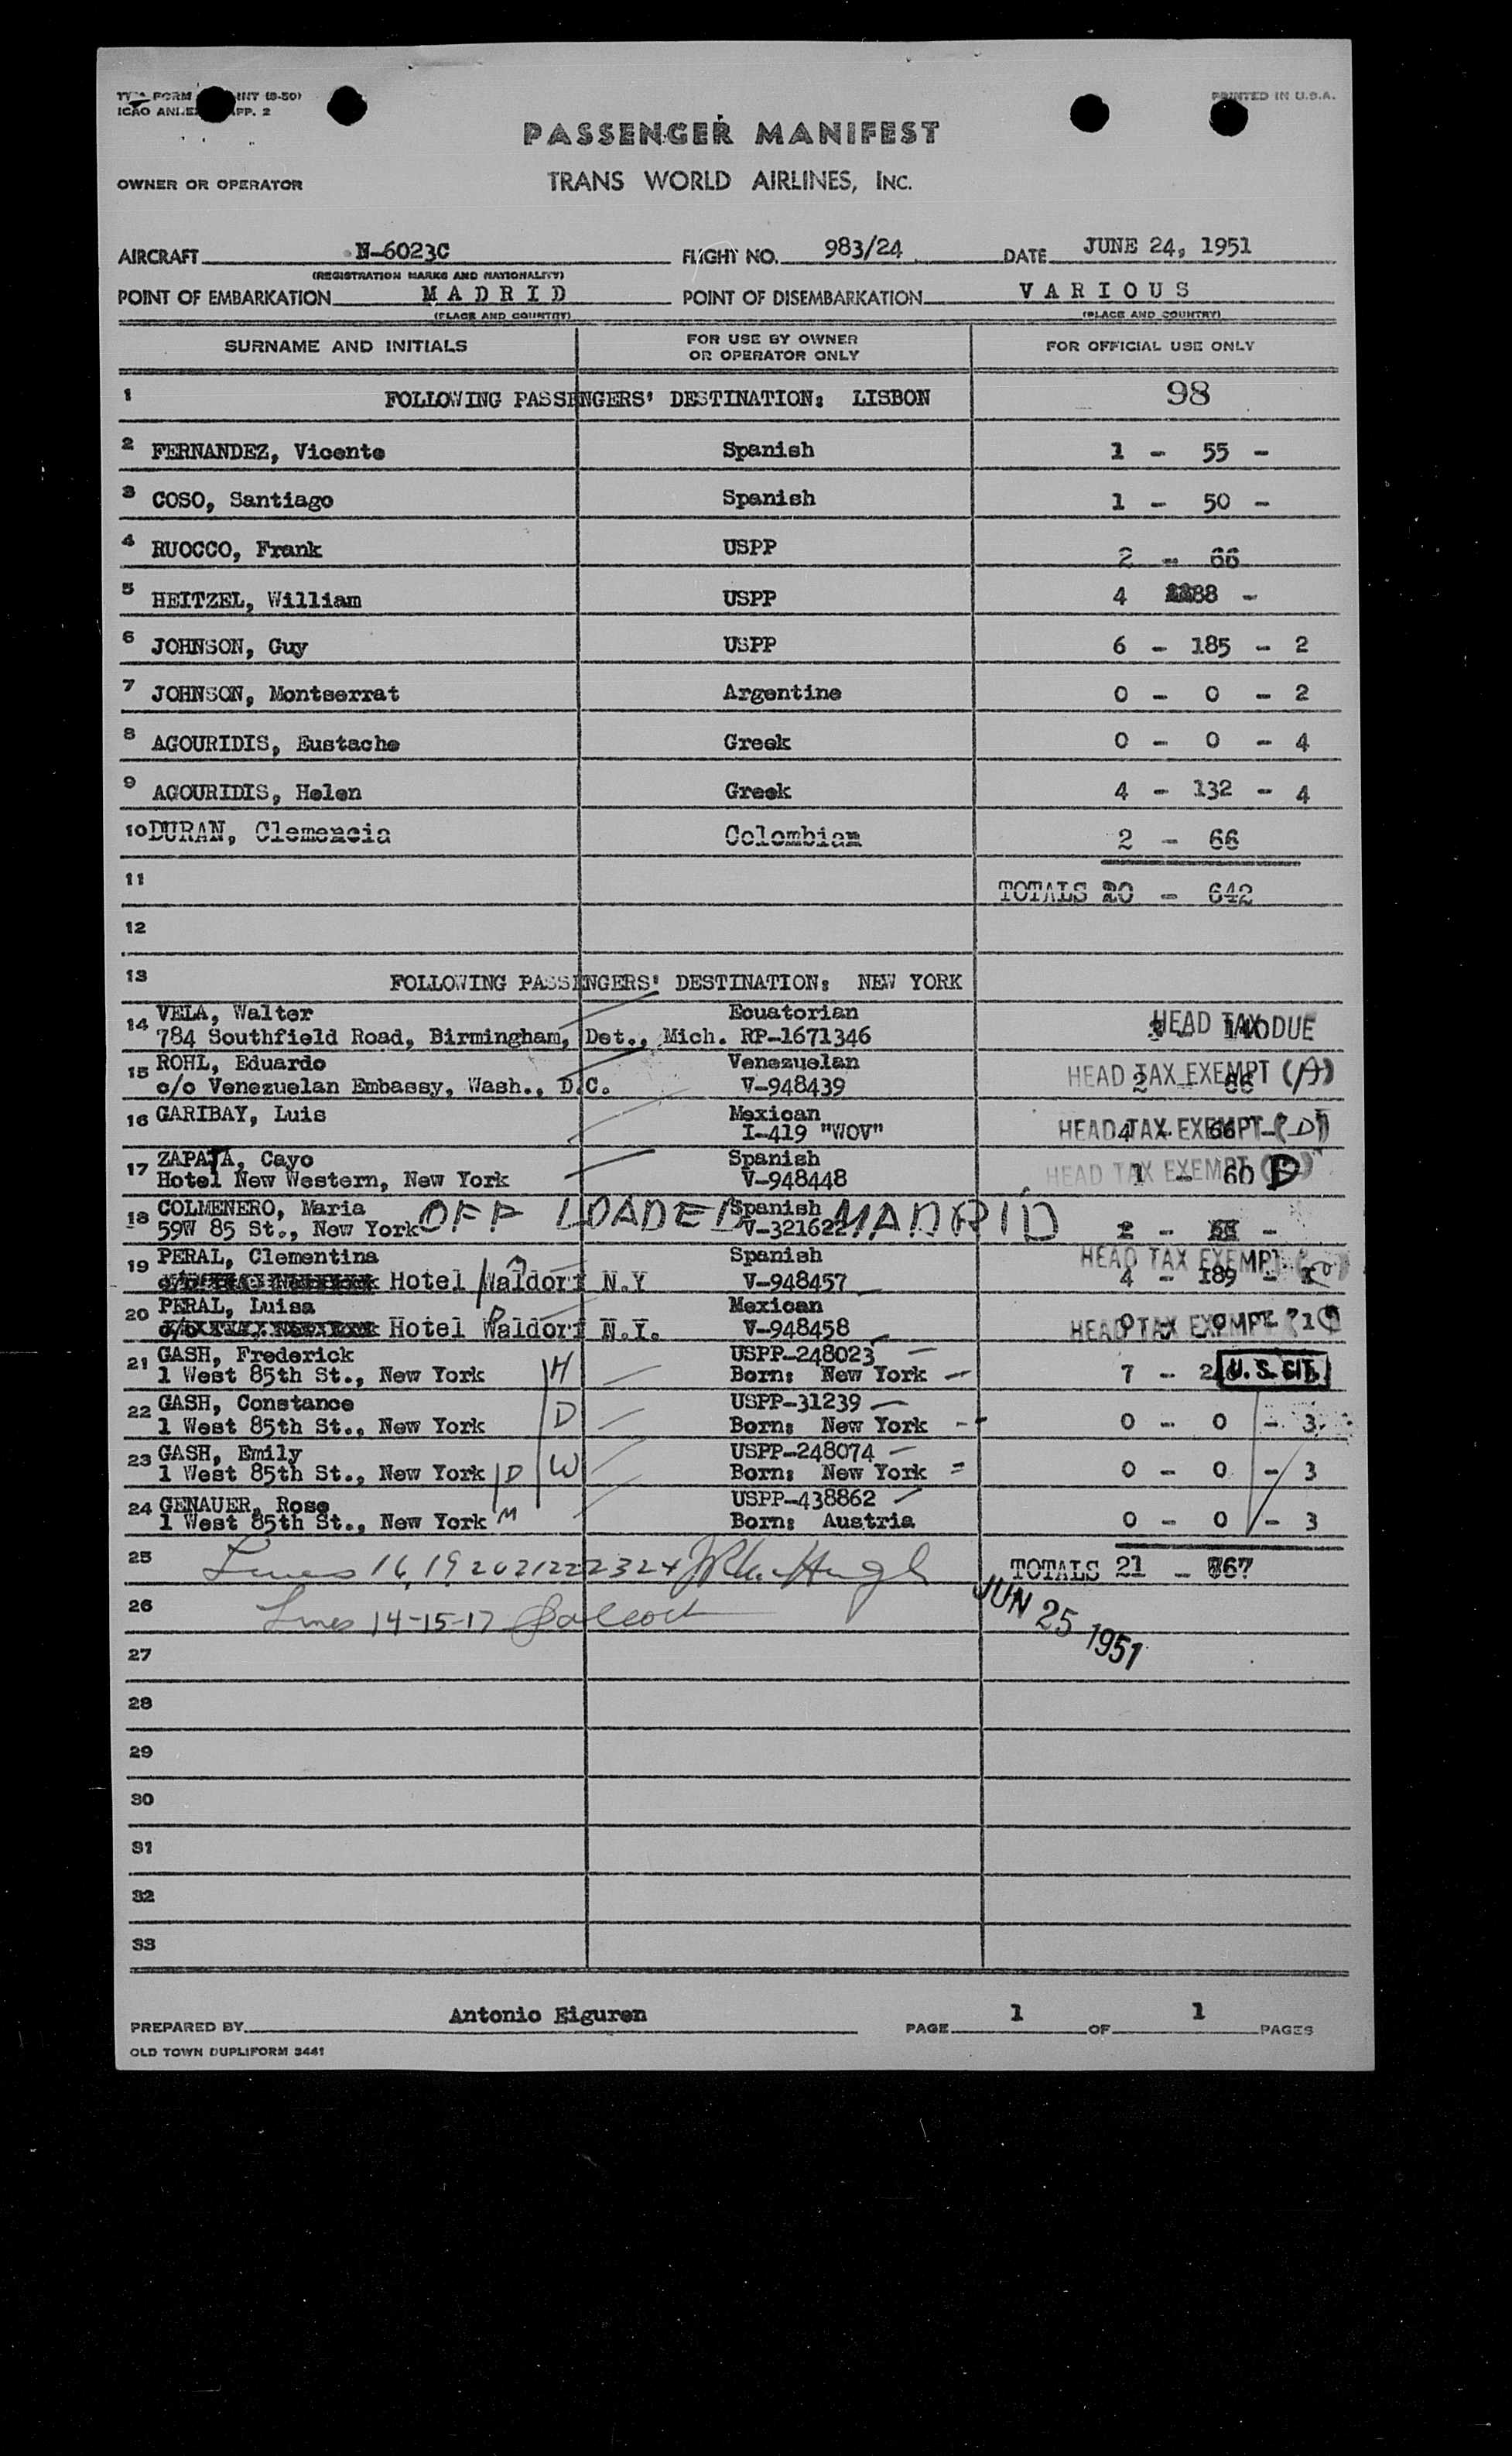 PRINTED IN U.S.A.
PASSENGER MANIFEST
OWNER OR OPERATOR TRANS WORLD AIRLINES, INC.
AIRCRAFT N-6023C FLIGHT NO. 983/24 DATE JUNE 24, 1951
(REGISTRATION MARKS AND NATIONALITY)
POINT OF EMBARKATION M A D R I D POINT OF DISEMBARKATION V A R I O U S
(PLACE AND COUNTRY) (PLACE AND COUNTRY)
SURNAME AND INITIALS FOR USE BY OWNER OR OPERATOR ONLY FOR OFFICIAL USE ONLY
1 FOLLOWING PASSENGERS' DESTINATION: LISBON 98
2 FERNANDEZ, Vicente Spanish 1 - 55 -
3 COSO, Santiago Spanish 1 - 50 -
4 RUOCCO, Frank USPP 2 - 66
5 HEITZEL, William USPP 4 88 -
6 JOHNSON, Guy USPP 6 - 185 - 2
7 JOHNSON, Montserrat Argentine 0 - 0 - 2
8 AGOURIDIS, Eustache Greek 0 - 0 - 4
9 AGOURIDIS, Helen Greek 4 - 132 - 4
10 DURAN, Clemencia Colombian 2 - 66
11 TOTALS 20 - 642
12
13 FOLLOWING PASSENGERS' DESTINATION: NEW YORK
14 VELA, Walter Ecuatorian HEAD TAX DUE
784 Southfield Road, Birmingham, Det., Mich. RP-1671346
15 ROHL, Eduardo Venezuelan HEAD TAX EXEMPT (A)
c/o Venezuelan Embassy, Wash., D.C. V-948439 2 - 66
16 GARIBAY, Luis Mexican HEAD TAX EXEMPT (D)
I-419 "WOV" 4 - 66 -
17 ZAPATA, Cayo Spanish HEAD TAX EXEMPT
Hotel New Western, New York V-948448 1 - 60 D
18 COLMENERO, Maria Spanish
OFF LOADED MADRID
59W 85 St., New York V-321622
19 PERAL, Clementina Spanish HEAD TAX EXEMPT
Hotel Waldorf N.Y V-948457 4 - 189 - 1
20 PERAL, Luisa Mexican
Hotel Waldorf N.Y. V-948458 HEAD TAX EXEMPT
21 GASH, Frederick H USPP-248023
1 West 85th St., New York Born: New York 7 - U. S. CIT.
22 GASH, Constance D USPP-31239
1 West 85th St., New York Born: New York 0 - 0 - 3
23 GASH, Emily USPP-248074
1 West 85th St., New York D W Born: New York 0 - 0 - 3
24 GENAUER, Rose USPP-438862
1 West 85th St., New York M Born: Austria 0 - 0 - 3
25 Lines 16, 19 20 21 22 23 24 TOTALS 21 - 767
26 Lines 14-15-17 JUN 25 1951
27
28
29
30
31
32
33
PREPARED BY Antonio Eiguren PAGE 1 OF 1 PAGES
OLD TOWN DUPLIFORM 3441